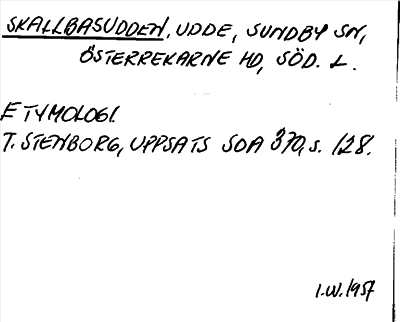 SKALLBASUDDEN, UDDE, SUNDBY SN,
ÖSTERREKARNE HD, SÖD. L.
ETYMOLOGI.
T. STENBORG, UPPSATS SOA 370, s. 128.
I.W. 1957